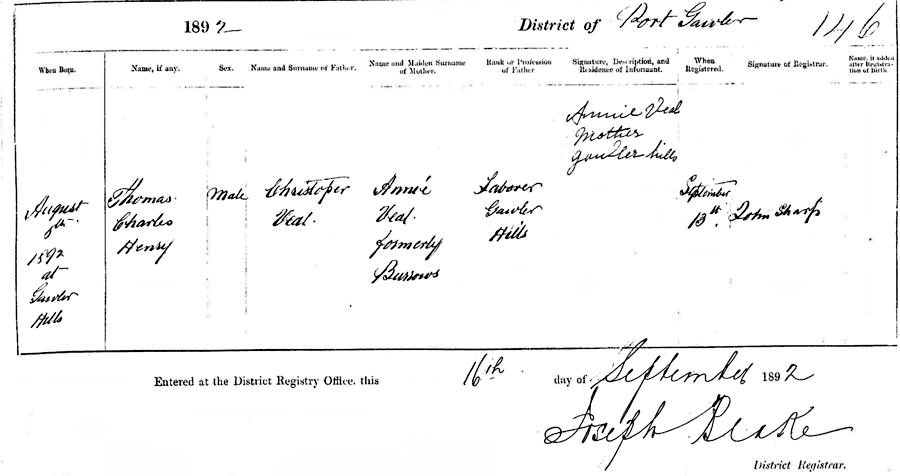 1892
District of Port Gawler
146
When Born.
Name, if any.
Sex.
Name and Surname of Father.
Name and Maiden Surname
of Mother.
Rank or Profession
of Father
Signature, Description, and
Residence of Informant.
When
Registered.
Signature of Registrar.
Name, if added
after Registra-
tion of Birth
August
1892
at
Gawler
Hills
Thomas
Charles
Henry
Male
Christoper
Veal.
Annie
Veal.
formerly
Burrows
Laborer
Gawler
Hills
Annie Veal
Mother
Gawler hills
September
13th
John Sharp
Entered at the District Registry Office, this 16th day of September 1892
Joseph Blake
District Registrar.